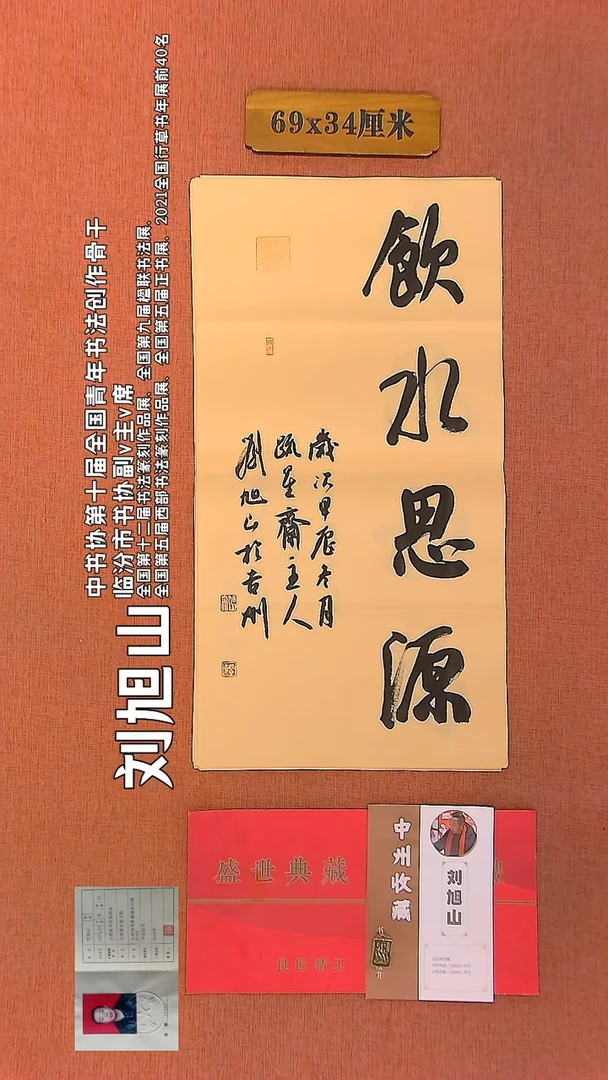 69x34厘米
飲水思源
歲次甲辰冬月
疏星齋主人
劉旭山於古州
中书协第十届全国青年书法创作骨干
临汾市书协副v主v席
全国第十二届书法篆刻作品展、全国第九届楹联书法展、
全国第五届西部书法篆刻作品展、全国第五届正书展、2021全国行草书年展前40名
刘旭山
盛世典藏
中州收藏
刘旭山